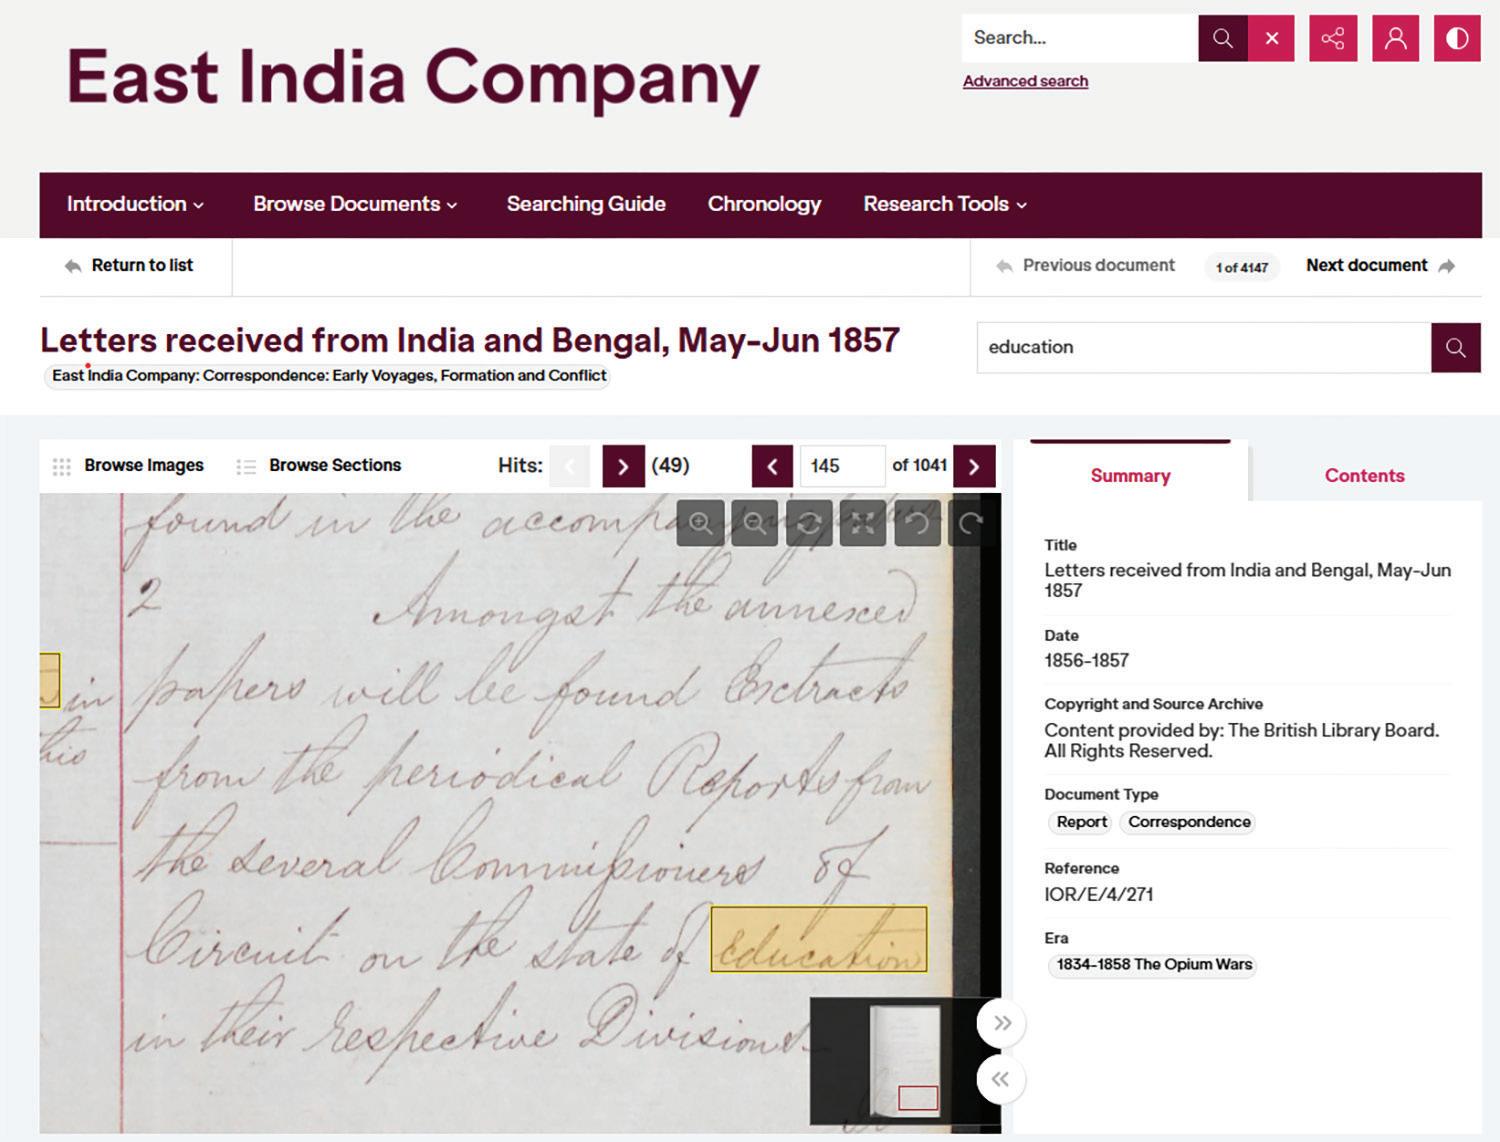 Search...
Advanced search
East India Company
Introduction
Browse Documents
Searching Guide
Chronology
Research Tools
Return to list
Previous document
1 of 4147
Next document
Letters received from India and Bengal, May-Jun 1857
East India Company: Correspondence: Early Voyages, Formation and Conflict
education
Browse Images
Browse Sections
Hits:
(49)
145
of 1041
found in the
2 Amongst the annexed
in papers will be found Extracts
this
from the periodical Reports from
the several Commissioners of
Circuit on the state of Education
in their respective Divisions.
Summary
Contents
Title
Letters received from India and Bengal, May-Jun
1857
Date
1856-1857
Copyright and Source Archive
Content provided by: The British Library Board.
All Rights Reserved.
Document Type
Report Correspondence
Reference
IOR/E/4/271
Era
1834-1858 The Opium Wars